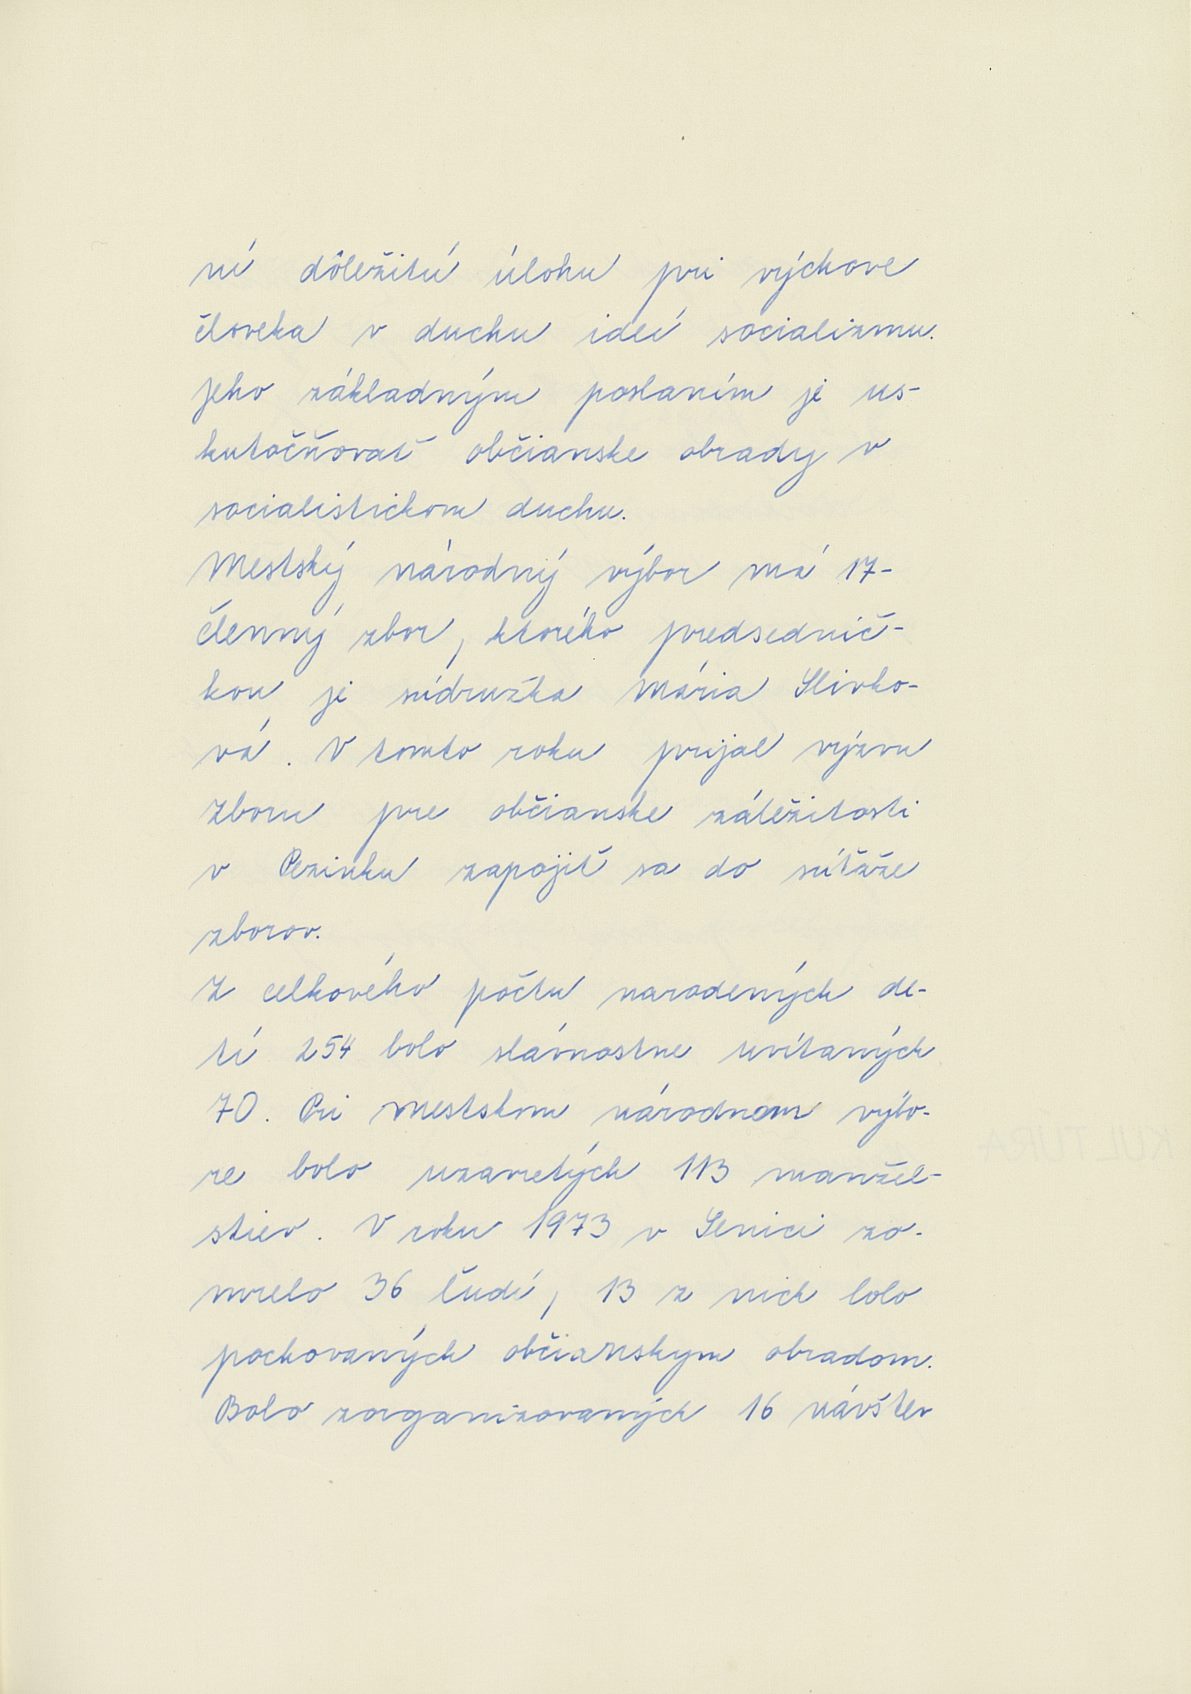 ní dôležitú úlohu pri výchove
človeka v duchu ideí socializmu.
Jeho základným poslaním je us-
kutočňovať občianske obrady v
socialistickom duchu.
Mestský národný výbor má 17-
členný zbor, ktorého predsednič-
kou je súdružka Mária Slivko-
vá. V tomto roku prijal výzvu
Zboru pre občianske záležitosti
v Pezinku zapojiť sa do súťaže
zborov.
Z celkového počtu narodených de-
tí 254 bolo slávnostne uvítaných
70. Pri Mestskom národnom výbo-
re bolo uzavretých 113 manžel-
stiev. V roku 1973 v Senici zo-
mrelo 36 ľudí, 13 z nich bolo
pochovaných občianskym obradom.
Bolo zorganizovaných 16 návštev
KULTURA